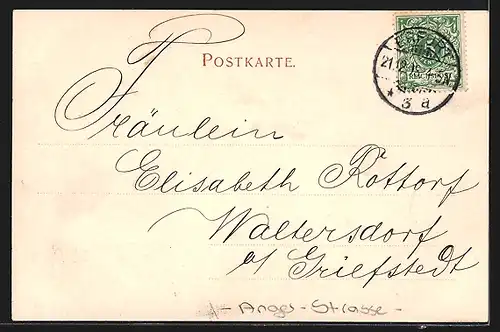 POSTKARTE.
Fräulein
Elisabeth Rottorf
Waltersdorf
a/ Griefstedt
- Anger - Strasse -
* 3 a